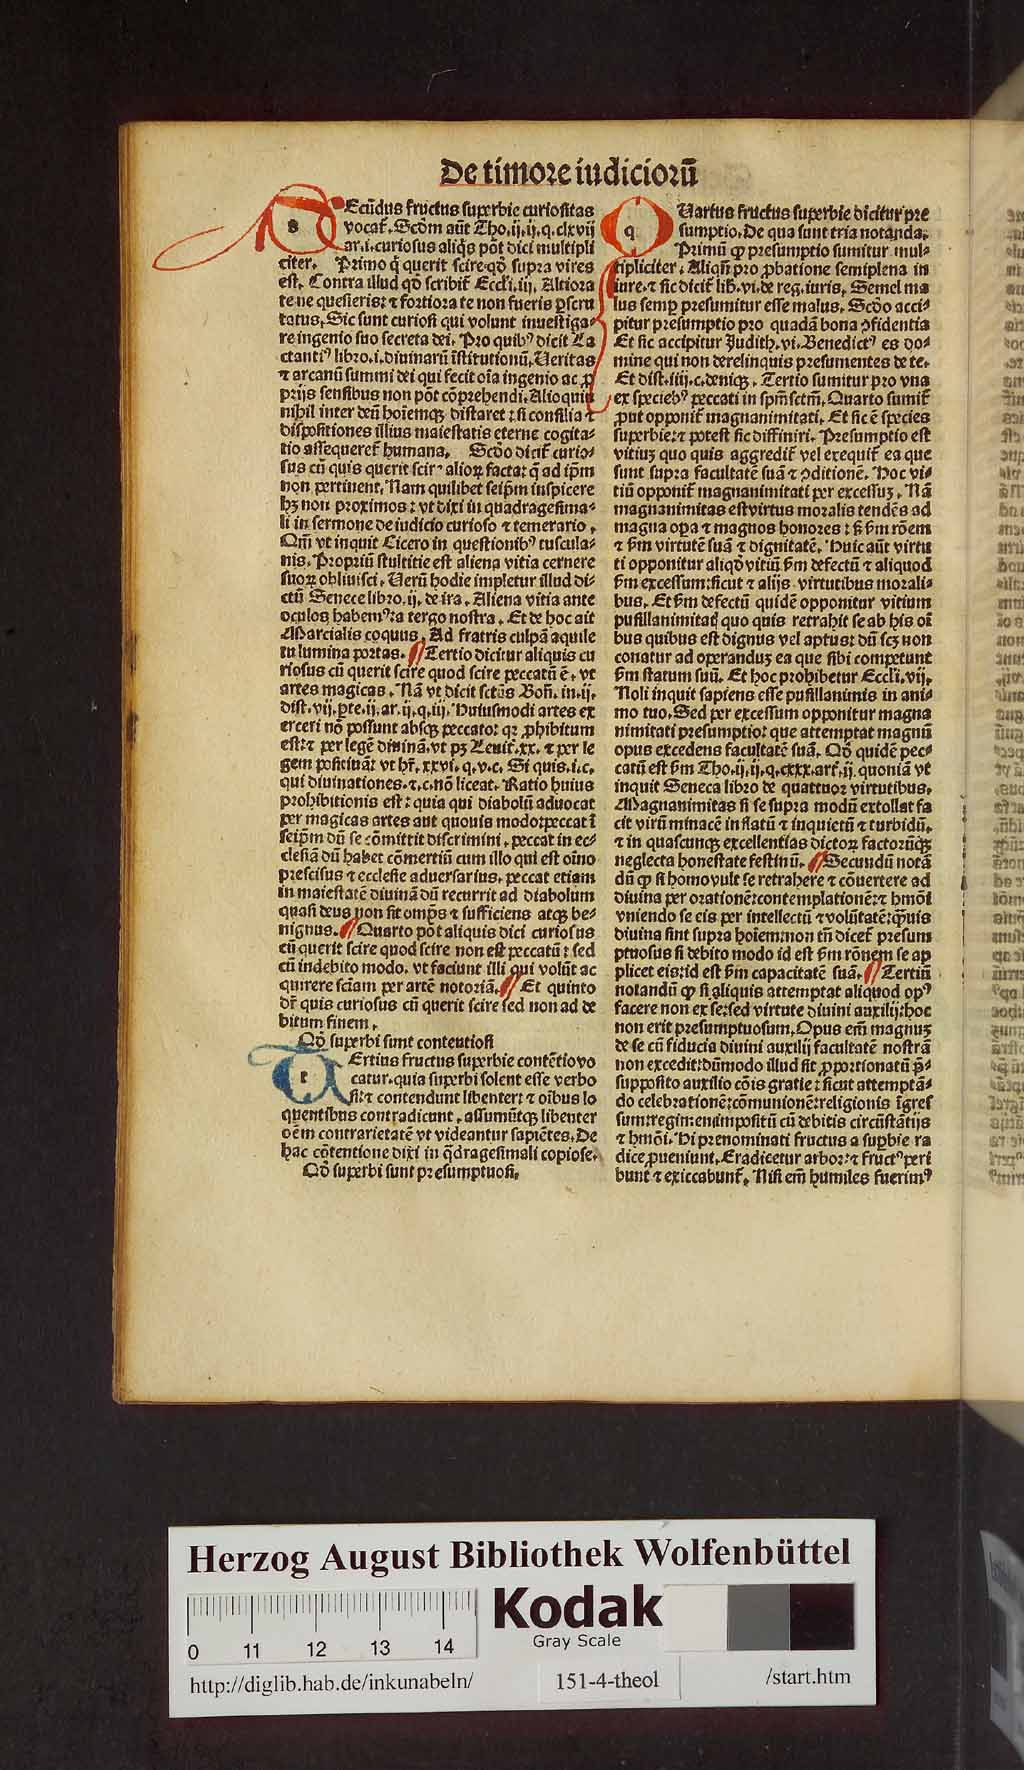 De timore iudiciorū
sEcūdus fructus superbie curiositas
vocat᷑. Scd̄m aūt Tho. ij. ij. q. clxvij
ar. i. curiosus aliq̇s pōt dici multipli
citer. Primo q̇ querit scire qd̄ supra vires
est. Contra illud qd̄ scribit᷑ Eccli. iij. Altiora
te ne quesieris: ⁊ fortiora te non fueris ꝑscru
tatus. Sic sunt curiosi qui volunt inuestiga⸗
re ingenio suo secreta dei. Pro quibꝰ dicit La
ctantiꝰ libro. i. diuinarū īstitutionū. Ueritas
⁊ arcanū summi dei qui fecit oīa ingenio ac ꝓ
prijs sensibus non pōt cōprehendi. Alioquin
nihil inter deū hoīemqꝫ distaret: si consilia ⁊
dispositiones illius maiestatis eterne cogita⸗
tio assequeret᷑ humana. Scd̄o dicit᷑ curio⸗
sus cū quis querit scire alioꝝ facta: q̄ ad ip̄m
non pertinent. Nam quilibet seip̄m inspicere
hꝫ non proximos: vt dixi in quadragesima⸗
li in sermone de iudicio curioso ⁊ temerario.
Qm̄ vt inquit Cicero in questionibꝰ tuscula⸗
nis. Propriū stultitie est aliena vitia cernere
suoꝝ obliuisci. Uerū hodie impletur illud di⸗
ctū Senece libro. ij. de ira. Aliena vitia ante
oculos habemꝰ: a tergo nostra. Et de hoc ait
Marcialis coquus. Ad fratris culpā aquile
tu lumina portas. Tertio dicitur aliquis cu
riosus cū querit scire quod scire peccatū ē. vt
artes magicas. Nā vt dicit sctūs Boñ. in. ij.
dist. vij. ꝑte. ij. ar. ij. q. iij. Huiusmodi artes ex
erceri nō possunt absqꝫ peccato: qꝛ ꝓhibitum
est: ⁊ per legē diuinā. vt pꝫ Leuit᷑. xx. ⁊ per le
gem positiuā: vt hr̄. xxvi. q. v. c. Si quis. i. c.
qui diuinationes. ⁊. c. nō liceat. Ratio huius
prohibitionis est: quia qui diabolū aduocat
per magicas artes aut quouis modo: peccat ī
seip̄m dū se cōmittit discrimini. peccat in ec⸗
clesiā dū habet cōmertiū cum illo qui est oīno
prescisus ⁊ ecclesie aduersarius. peccat etiam
in maiestatē diuinā dū recurrit ad diabolum
quasi deus non sit omp̄s ⁊ sufficiens atqꝫ be⸗
nignus. Quarto pōt aliquis dici curiosus
cū querit scire quod scire non est peccatū: sed
cū indebito modo. vt faciunt illi qui volūt ac
quirere sciam per artē notoriā. Et quinto
dr̄ quis curiosus cū querit scire sed non ad de
bitum finem.
Qd̄ superbi sunt contentiosi
tErtius fructus superbie contētio vo
catur. quia superbi solent esse verbo
si: ⁊ contendunt libenter: ⁊ oībus lo
quentibus contradicunt. assumūtqꝫ libenter
oēm contrarietatē vt videantur sapiētes. De
hac cōtentione dixi in q̄dragesimali copiose.
Qd̄ superbi sunt presumptuosi.
qUartus fructus superbie dicitur pre
sumptio. De qua sunt tria notanda.
Primū ꝙ presumptio sumitur mul⸗
tipliciter. Aliqn̄ pro ꝓbatione semiplena in
iure. ⁊ sic dicit᷑ lib. vi. de reg. iuris. Semel ma
lus semꝑ presumitur esse malus. Scd̄o acci⸗
pitur presumptio pro quadā bona ꝯfidentia
Et sic accipitur Judith. vi. Benedictꝰ es do⸗
mine qui non derelinquis presumentes de te.
Et dist. iiij. c. deniqꝫ. Tertio sumitur pro vna
ex speciebꝰ peccati in spm̄ sctm̄. Quarto sumit᷑
ꝓut opponit᷑ magnanimitati. Et sic ē species
superbie: ⁊ potest sic diffiniri. Presumptio est
vitiuꝫ quo quis aggredit᷑ vel exequit᷑ ea que
sunt supra facultatē suā ⁊ ꝯditionē. Hoc vi⸗
tiū opponit᷑ magnanimitati per excessuꝫ. Nā
magnanimitas est virtus moralis tendēs ad
magna oꝑa ⁊ magnos honores: ꝗ ẜm rōem
⁊ ẜm virtutē suā ⁊ dignitatē. Huic aūt virtu
ti opponitur aliqd̄ vitiū ẜm defectū ⁊ aliquod
ẜm excessum: sicut ⁊ alijs virtutibus morali⸗
bus. Et ẜm defectū quidē opponitur vitium
pusillanimitas quo quis retrahit se ab his oī
bus quibus est dignus vel aptus: dū scꝫ non
conatur ad operanduꝫ ea que sibi competunt
ẜm statum suū. Et hoc prohibetur Eccli. vij.
Noli inquit sapiens esse pusillanimis in ani⸗
mo tuo. Sed per excessum opponitur magna
nimitati presumptio: que attemptat magnū
opus excedens facultatē suā. Qd̄ quidē pec⸗
catū est ẜm Tho. ij. ij. q. cxxx. art᷑. ij. quoniā vt
inquit Seneca libro de quattuor virtutibus.
Magnanimitas si se supra modū extollat fa
cit virū minacē inflatū ⁊ inquietū ⁊ turbidū.
⁊ in quascunqꝫ excellentias dictoꝝ factorūqꝫ
neglecta honestate festinū. Secundū notā
dū ꝙ si homo vult se retrahere ⁊ cōuertere ad
diuina per orationē: contemplationē: ⁊ hmōi
vniendo se eis per intellectū ⁊ volūtatē: q̄uis
diuina sint supra hoīem: non tn̄ dicet᷑ presum
ptuosus si debito modo id est ẜm rōnem se ap
plicet eis: id est ẜm capacitatē suā. Tertiū
notandū ꝙ si aliquis attemptat aliquod opꝰ
facere non ex se: sed virtute diuini auxilij: hoc
non erit presumptuosum. Opus em̄ magnuꝫ
de se cū fiducia diuini auxilij facultatē nostrā
non excedit: dūmodo illud sit ꝓportionatū p̄⸗
supposito auxilio cōis gratie: sicut attemptā⸗
do celebrationē: cōmunionē: religionis īgres
sum: regimen impositū cū debitis circūstātijs
⁊ hmōi. Hi prenominati fructus a suꝑbie ra
dice ꝓueniunt. Eradicetur arbor: ⁊ fructꝰ peri
bunt ⁊ exiccabunt᷑. Nisi em̄ humiles fuerimꝰ
Herzog August Bibliothek Wolfenbüttel
Kodak
Gray Scale
0 11 12 13 14
http://diglib.hab.de/inkunabeln/ 151-4-theol /start.htm